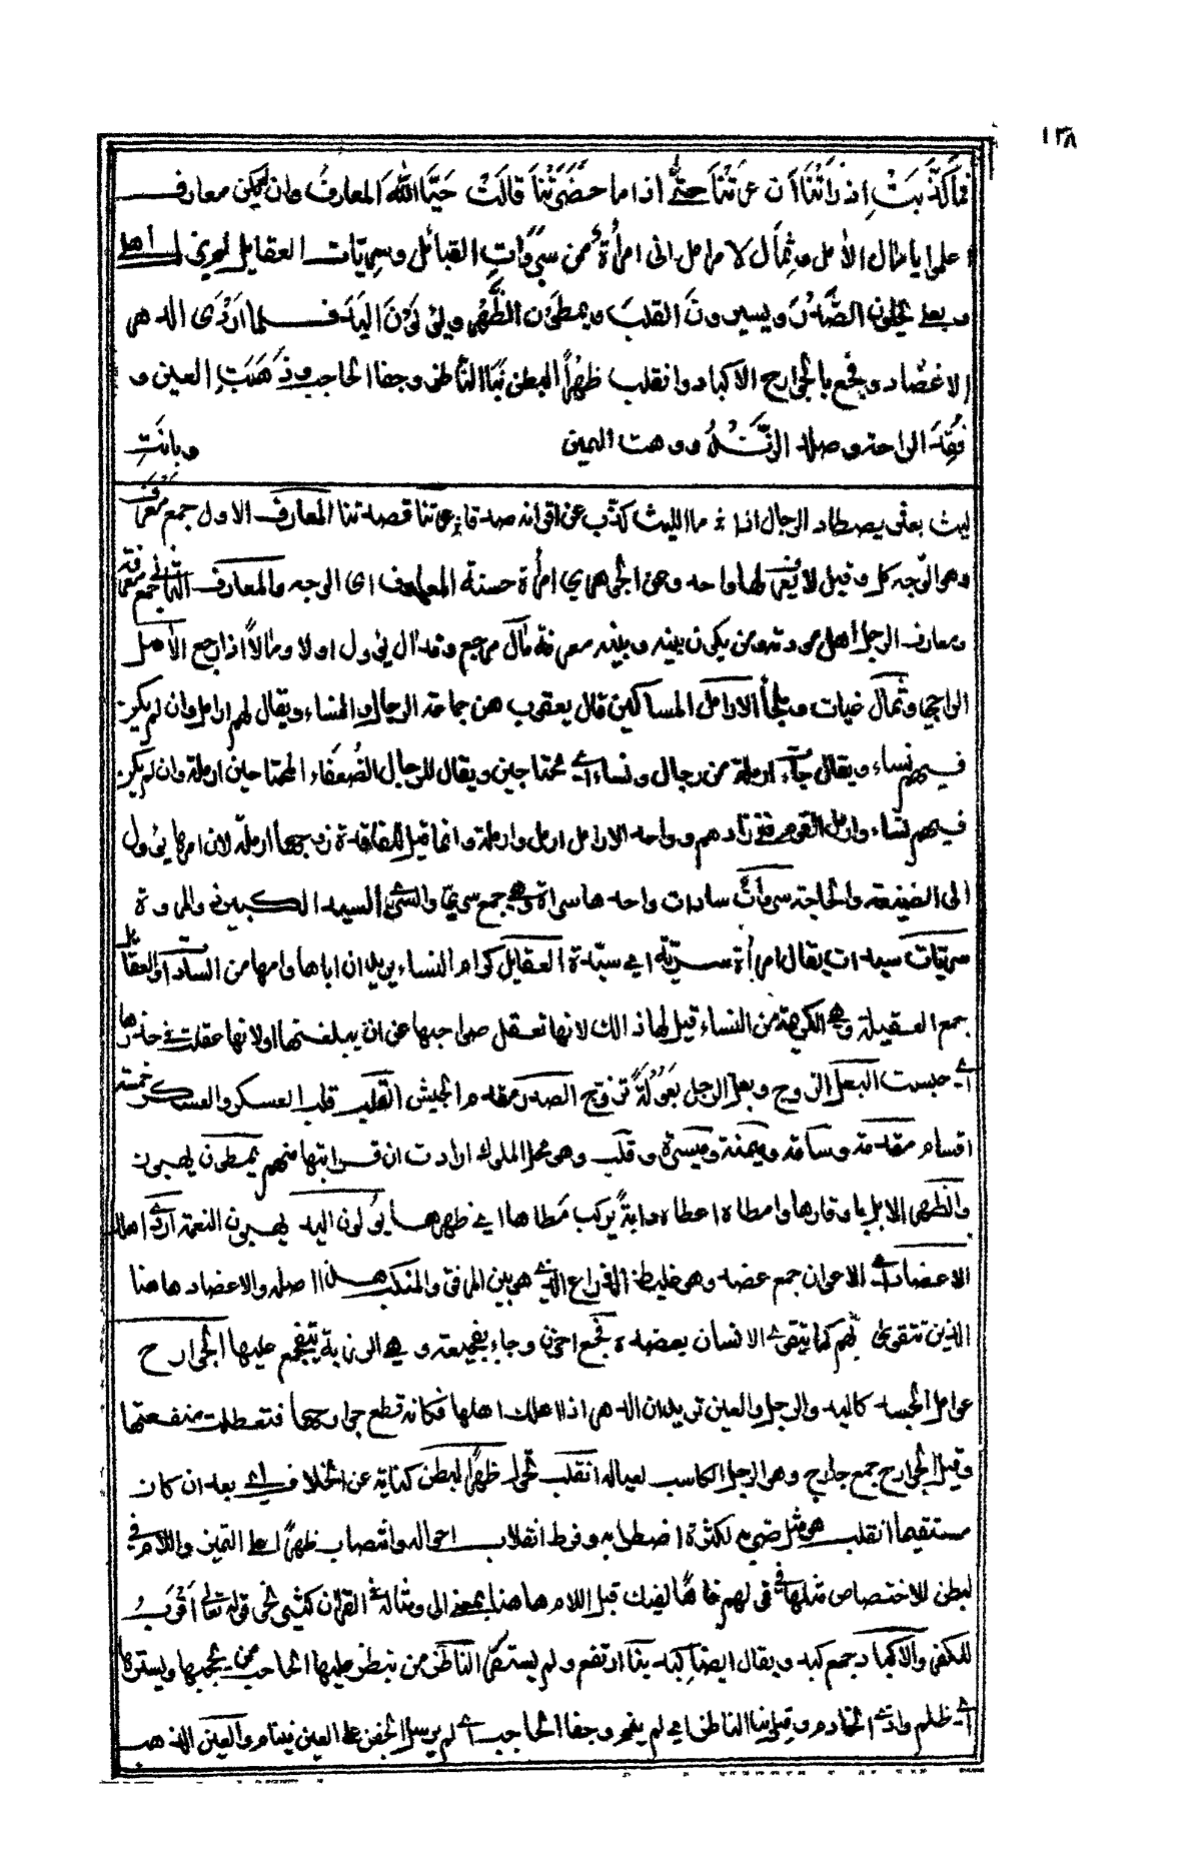 ١٣٨
فما كذبت اذ رأتنا ان عرتنا حتى اذا ما حضرتنا قالت حيّا الله المعارف وان لم يكن معارف
اعلموا يا مال الآمل وثمال الارامل انى امرأة من سروات القبائل وسريات العقايل لم يزل اهلى
وبعلى يحلون الصدر ويسيرون القلب ويمطون الظهر ويولون اليد فلما اردى الدهر
الاعضاد وفجع بالجوارح الاكباد وانقلب ظهرا لبطن نبا الناظر وجفا الحاجب وذهبت العين و
فقدت الراحة وصلد الزند ووهت اليمين وبانت
ليث بعثر يصطاد الرجال اذا ما الليث كذب عن اقرانه صدقا عرتنا قصدتنا المعارف الاول جمع معرف
وهو الوجه كل وقيل لا يعرف لها واحد وعن الجوهرى امرأة حسنة المعارف اى الوجه والمعارف الثانى جمع معرفة
ومعارف الرجل اهل مودته ومن يكون بينه وبينه معرفة مآل مرجع وقد آل يؤول اولا ومآلا اذا رجع الآمل
الراجى وثمال غياث وملجأ الارامل المساكين قال يعقوب هن جماعة الرجال والنساء ويقال لهم ارامل وان لم يكن
فيهم نساء ويقال جاء ارملة من رجال ونساء اى محتاجين ويقال للرجال الضعفاء المحتاجين ارملة وان لم يكن
فيهم نساء وارمل القوم فنى زادهم وواحد الارامل ارمل وارملة وانما قيل للفاقدة زوجها ارملة لان امرها يؤول
الى الضيعة والحاجة سروات سادات واحدها سراة وهى جمع سرى والسرى السيد الكبير والمروة
سريات سيدات يقال امرأة سرية اى سيدة العقايل كرام النساء يريد ان اباها وامها من السادات والعقايل
جمع العقيلة وهى الكريمة من النساء قيل لها ذالك لانها تعقل صواحبها عن ان يبلغنها او لانها عقلت فى خدرها
اى حبست البعل الزوج وبعل الرجل بعولة تزوج الصدر مقدم الجيش القلب قلب العسكر والعسكر خمسة
اقسام مقدمة وساقة وميمنة وميسرة وقلب وهو محل الملوك ارادت ان قرابتها منهم يمطون يهبون
والظهر الابل باوقارها وامطاه اعطاه دابة يركب مطاها اى ظهرها يولون اليد يهبون النعمة اردى اهلك
الاعضاد اى الاعوان جمع عضد وهو غليظ الذراع الذى هو بين المرفق والمنكب هذا اصله والاعضاد هاهنا
الذين تتقوى بهم كما يتقوى الانسان بعضده فجع احزن وجاء بفجيعة وهى الرزية يتفجع عليها الجوارح
عوامل الجسد كاليد والرجل والعين تريد ان الدهر اذا اهلك اهلها فكانه قطع جوارحها فتعطلت منفعتها
وقيل الجوارح جمع جارح وهو الرجل الكاسب لعياله انقلب تحول ظهرا لبطن كناية عن الخلاف اى بعد ان كان
مستقيما انقلب هو مثل ضرب لكثرة اضطرابه وفرط انقلاب احواله وانتصاب ظهرا على التميز واللام فى
لبطن للاختصاص مثلها فى قولهم قبل اللام هاهنا بمعنى الى ومثاله فى القرآن كثير نحو قوله تعالى اقرب
للكفر والاكباد جمع كبد ويقال ايضا كبد نبا ارتفع ولم يستقر الناظر من ينظر عليها الحاجب من يحجبها ويسترها
اى ظلم واذى الخادم وقيل نبا الناظر اى لم ينم وجفا الحاجب اى لم يرسل الجفن على العين فينام والعين الذهب